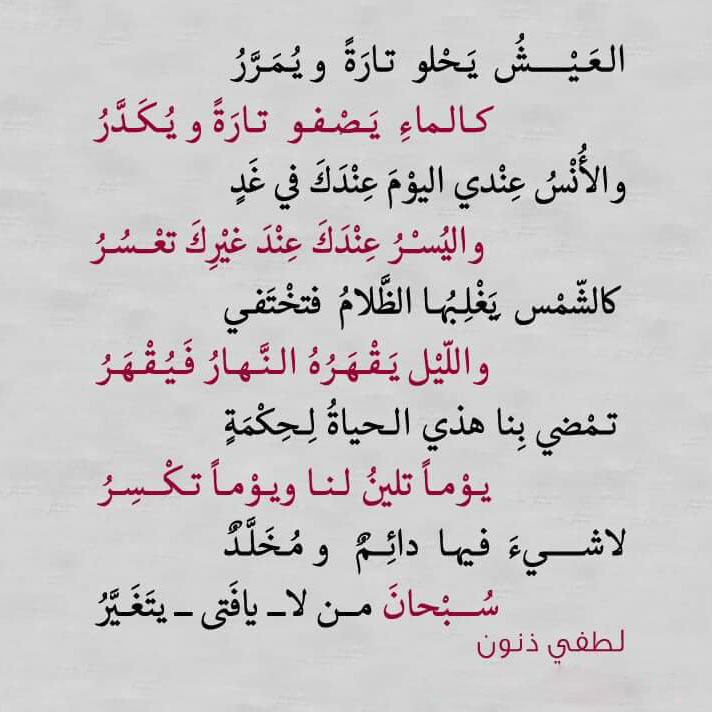 العَيْـــشُ يَحْلو تارَةً و يُمَرَّرُ
كالماءِ يَصْفو تارَةً و يُكَدَّرُ
والأُنْسُ عِنْدي اليوْمَ عِنْدَكَ في غَدٍ
واليُسْرُ عِنْدَكَ عِنْدَ غيْرِكَ تعْسُرُ
كالشّمْس يَغْلِبُها الظَّلامُ فتخْتَفي
واللّيْل يَقْهَرُهُ النَّهارُ فَيُقْهَرُ
تمْضي بِنا هذي الحياةُ لِحِكْمَةٍ
يوْماً تلينُ لنا ويوْماً تكْسِرُ
لاشـــيءَ فيها دائِمٌ و مُخَلَّدٌ
سُـــبْحانَ مـن لاـ يافَتى ـ يتَغَيَّرُ
لطفي ذنون